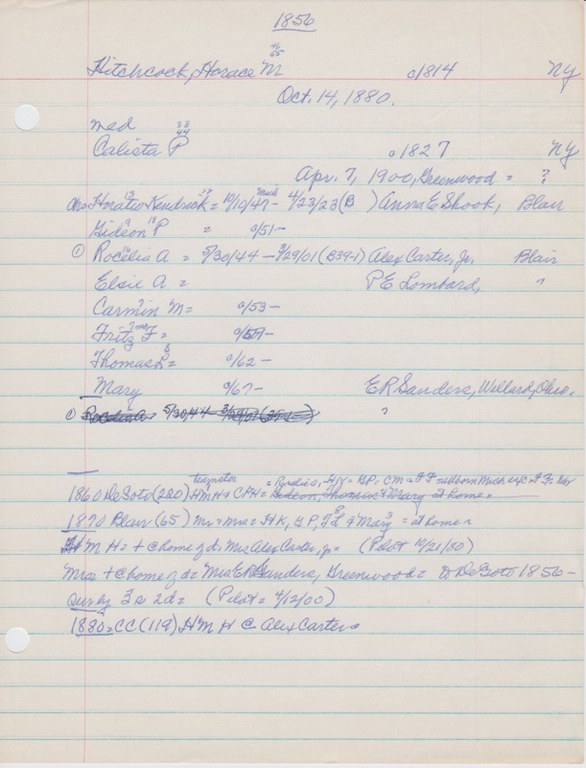 1856
46
65
Hitchcock, Horace M c/1814 NY
Oct. 14, 1880.
med
33
44
Calista P c/1827 NY
Apr. 7, 1900, Greenwood = ?
Horatio Kendrick = 10/10/47 - 4/23/23 (B ) Anna E Shook, Blair
Gideon P = c/51-
① Rocelia A = 5/30/44 - 3/29/01 (B39-1) Alex Carter, Jr. Blair
Elsie A = P E Lombard, "
Carmin M = c/53-
Fritz F = c/57-
Thomas L = c/62-
Mary c/67- E R Sanders, Willard, Ohio.
① Rocelia A = 5/30/44 3/29/01 "
teamster
1860 DeSoto (280) HMH & CPH = Rodelio, HK = GP, CM = F F Gideon, Thomas & Mary at home.
1870 Blair (65) Mr & Mrs = HK, GP, TL & Mary = at home
H M H = + @ home of d. Mrs Alex Carter, Jr = (Pilot 10/21/80)
Mrs + @ home of d = Mrs E R Sanders, Greenwood = to DeSoto 1856-
Surv by 3 s 2 d = (Pilot = 4/12/00)
1880 = CC (119) H M H @ Alex Carters